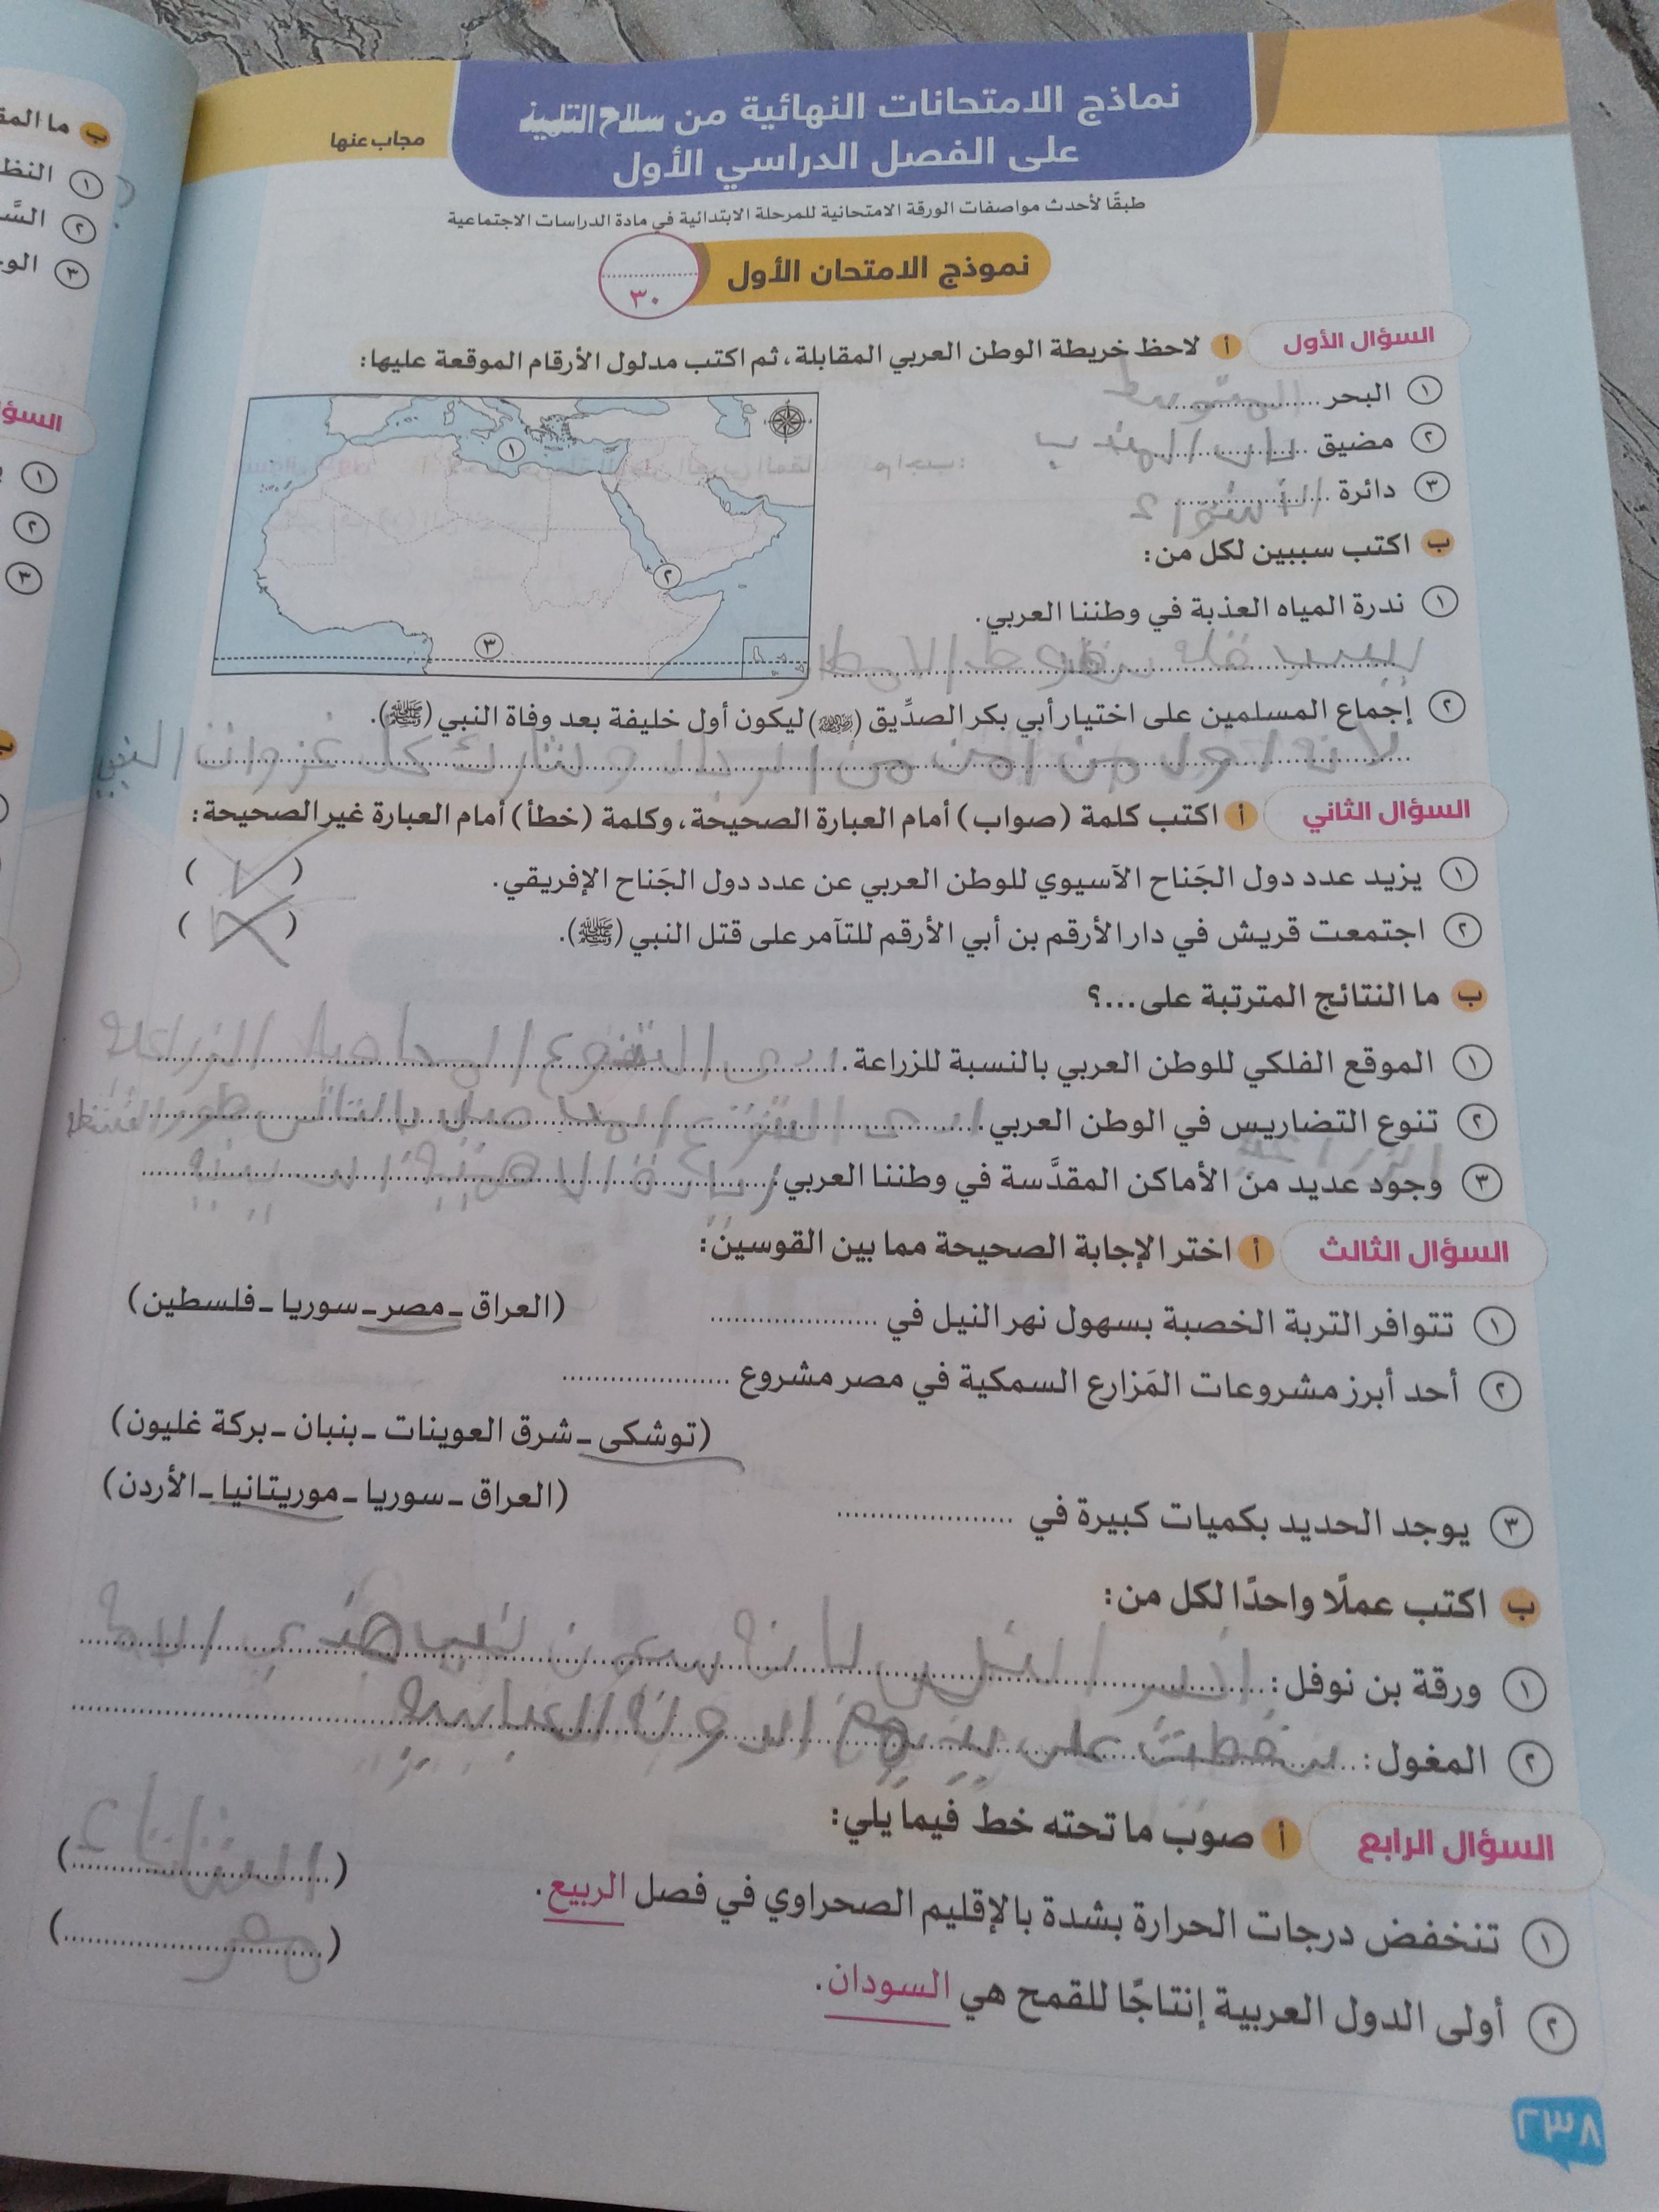 نماذج الامتحانات النهائية من سلاح التلميذ
على الفصل الدراسي الأول
مجاب عنها
طبقًا لأحدث مواصفات الورقة الامتحانية للمرحلة الابتدائية في مادة الدراسات الاجتماعية
نموذج الامتحان الأول
٣٠
السؤال الأول أ لاحظ خريطة الوطن العربي المقابلة، ثم اكتب مدلول الأرقام الموقعة عليها:
١ البحر المتوسط
٢ مضيق باب المندب
٣ دائرة الاستواء
١
٢
٣
ب اكتب سببين لكل من:
١ ندرة المياه العذبة في وطننا العربي.
بسبب قلة سقوط الامطار
٢ إجماع المسلمين على اختيار أبي بكر الصدِّيق (رضي الله عنه) ليكون أول خليفة بعد وفاة النبي (ﷺ).
لانه اول من امن من الرجال و شارك كل غزوات النبي
السؤال الثاني أ اكتب كلمة (صواب) أمام العبارة الصحيحة، وكلمة (خطأ) أمام العبارة غير الصحيحة:
١ يزيد عدد دول الجَناح الآسيوي للوطن العربي عن عدد دول الجَناح الإفريقي. (✓)
٢ اجتمعت قريش في دار الأرقم بن أبي الأرقم للتآمر على قتل النبي (ﷺ). (✗)
ب ما النتائج المترتبة على...؟
١ الموقع الفلكي للوطن العربي بالنسبة للزراعة.
٢ تنوع التضاريس في الوطن العربي.
٣ وجود عديد من الأماكن المقدَّسة في وطننا العربي:
السؤال الثالث أ اختر الإجابة الصحيحة مما بين القوسين:
١ تتوافر التربة الخصبة بسهول نهر النيل في .................... (العراق - مصر - سوريا - فلسطين)
٢ أحد أبرز مشروعات المَزارع السمكية في مصر مشروع ....................
(توشكى - شرق العوينات - بنبان - بركة غليون)
٣ يوجد الحديد بكميات كبيرة في .................... (العراق - سوريا - موريتانيا - الأردن)
ب اكتب عملًا واحدًا لكل من:
١ ورقة بن نوفل:
٢ المغول:
السؤال الرابع أ صوب ما تحته خط فيما يلي:
١ تنخفض درجات الحرارة بشدة بالإقليم الصحراوي في فصل الربيع. (الشتاء)
٢ أولى الدول العربية إنتاجًا للقمح هي السودان. (مصر)
٢٣٨
ب ما المق
١ النظ
٢ السَّ
٣ الوح
السؤ
١
٢
٣